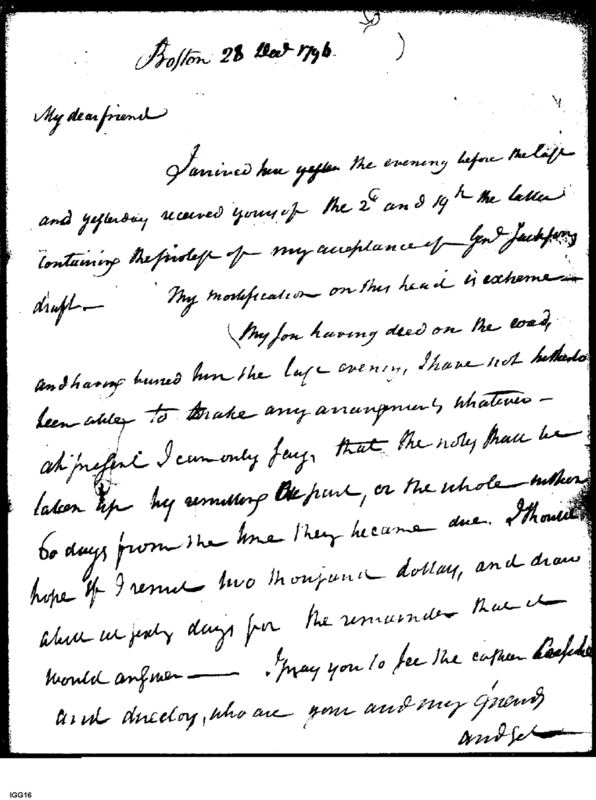 Boston 28 Decr 1796.
My dear friend
I arrived here yester the evening before the last
and yesterday received yours of the 2d and 19th the latter
containing the protest of my acceptance of Genl Jacksons
draft — My mortification on this head is extreme —
My son having died on the road,
and having buried him the last evening, I have not hitherto
been able to make any arrangements whatever —
At present I can only say, that the notes shall be
taken up by remitting part, or the whole within
60 days from the time they became due. I should
hope if I remit two thousand dollars, and draw
at sixty days for the remainder that it
would answer — I pray you to see the cashier
and directors, who are your and my friends
and get
IGG16